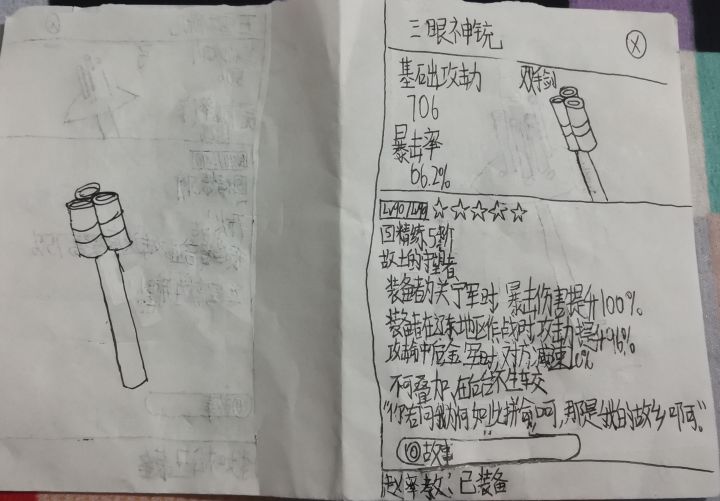 三眼神铳
X
基础攻击力
双手剑
706
暴击率
66.2%
Lv90/Lv90 ☆☆☆☆☆
5 精练5阶
故土的守望者
装备者为关宁军时,暴击伤害提升100%
装备者在辽东地区作战时,攻击力提升96%
攻击命中后金军时,对方减速
不可叠加,在后台
"你若问我为何如此拼命呵,那是我的故乡吓呵。"
故事
赵率教:已装备